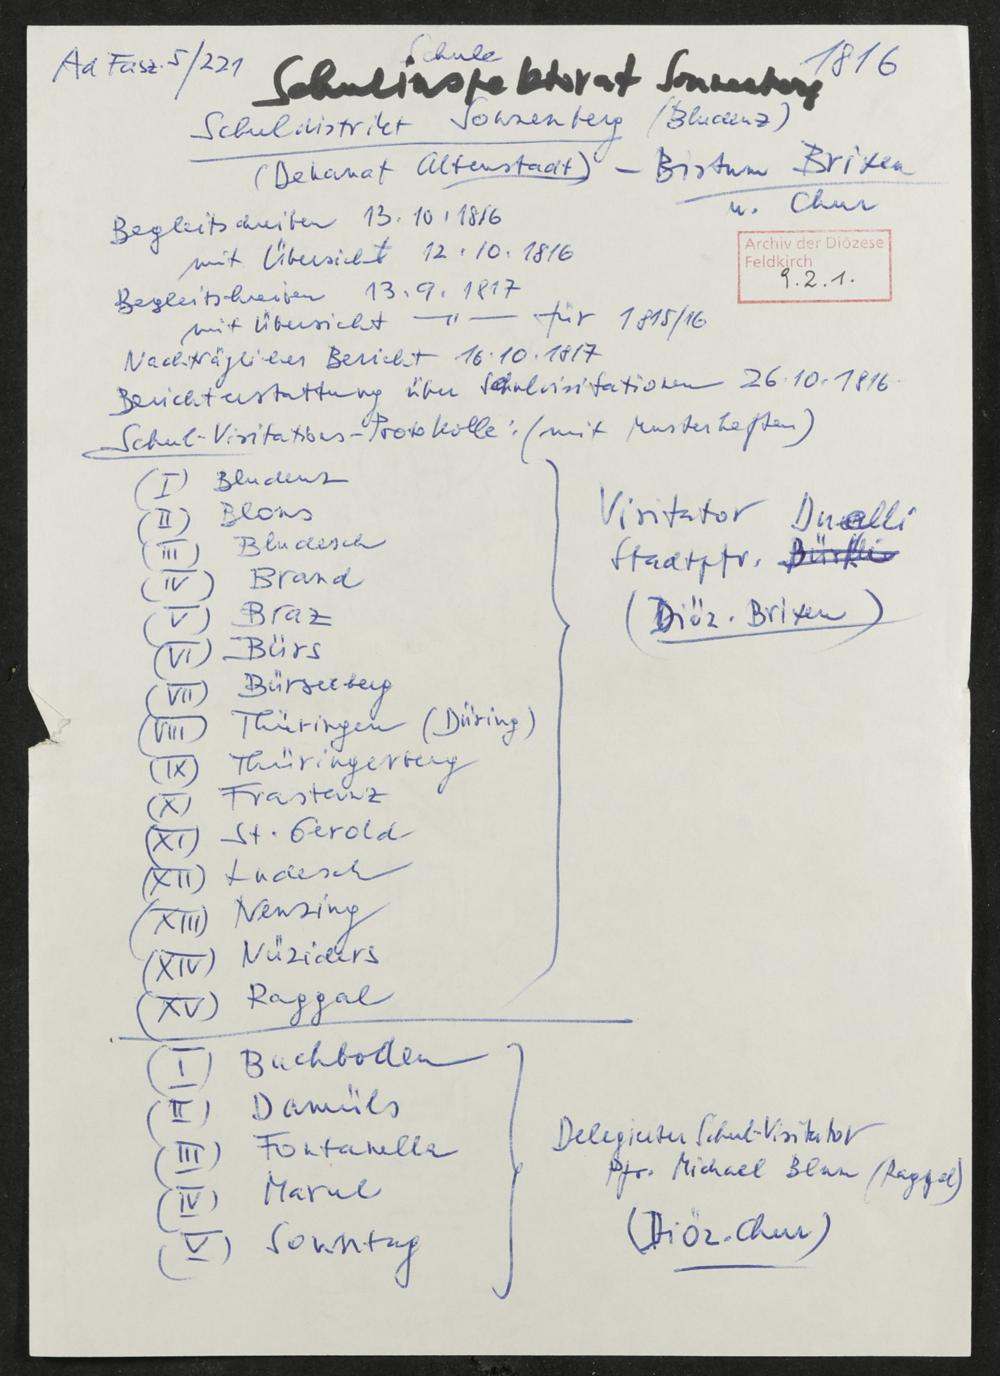 Ad Fasz. 5/221
Schule
1816
Schulinspektorat Sonnenberg
Schuldistrikt Sonnenberg (Bludenz)
(Dekanat Altenstadt) – Bistum Brixen
u. Chur
Archiv der Diözese
Feldkirch
9.2.1.
Begleitschreiben 13.10.1816
mit Übersicht 12.10.1816
Begleitschreiben 13.9.1817
mit Übersicht —"— für 1815/16
Nachträglicher Bericht 16.10.1817
Berichterstattung über Schulvisitationen 26.10.1816.
Schul-Visitations-Protokolle: (mit Musterheften)
(I) Bludenz
(II) Blons
(III) Bludesch
(IV) Brand
(V) Braz
(VI) Bürs
(VII) Bürserberg
(VIII) Thüringen (Düring)
(IX) Thüringerberg
(X) Frastanz
(XI) St. Gerold
(XII) Ludesch
(XIII) Nenzing
(XIV) Nüziders
(XV) Raggal
Visitator
Stadtpfr.
(Diöz. Brixen)
(I) Buchboden
(II) Damüls
(III) Fontanella
(IV) Marul
(V) Sonntag
Delegierter Schul-Visitator
Pfr. Michael Blum (Raggal)
(Diöz. Chur)